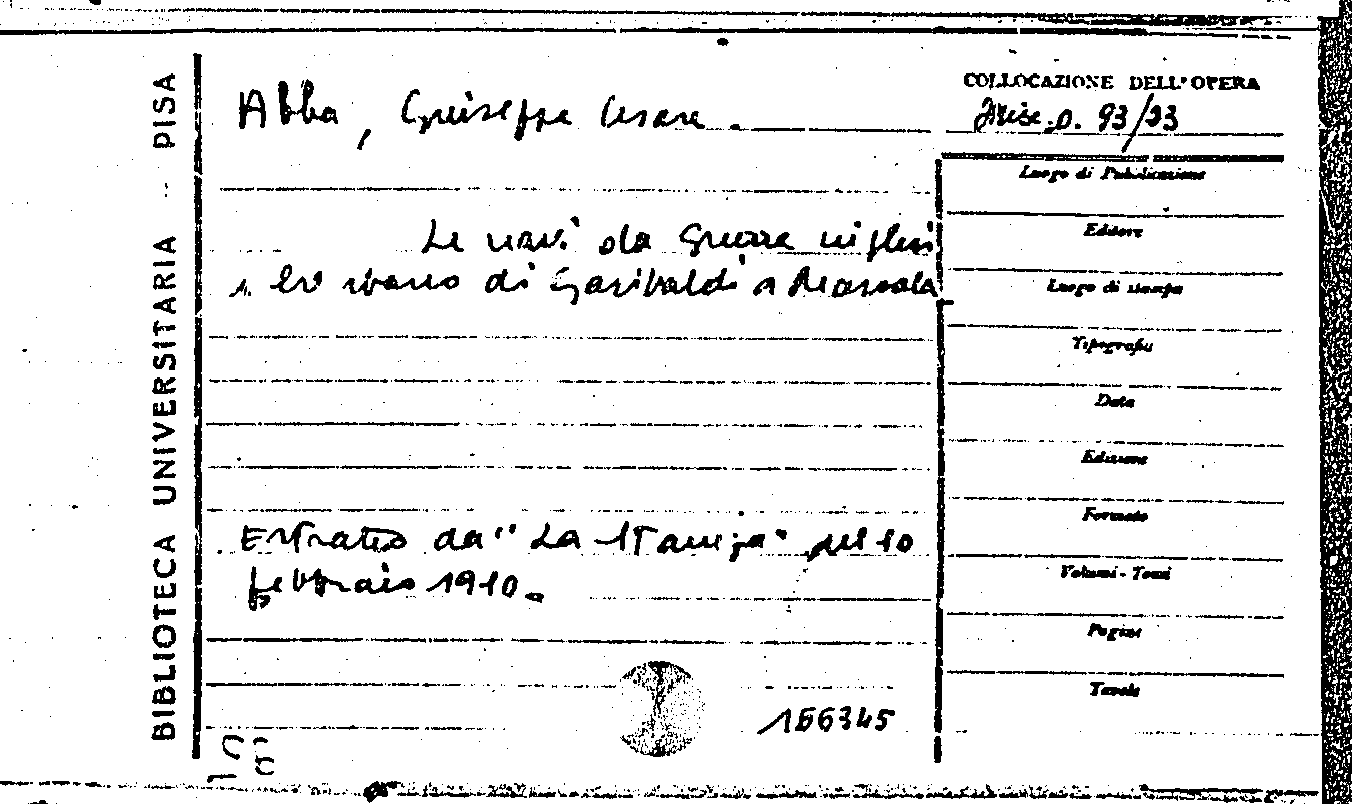 BIBLIOTECA UNIVERSITARIA - PISA
Abba, Giuseppe Cesare.
COLLOCAZIONE DELL'OPERA
Misc. D. 93/23
Luogo di Pubblicazione
Le navi da guerra inglesi
Editore
e lo sbarco di Garibaldi a Marsala
Luogo di stampa
Tipografia
Data
Edizione
Formato
Estratto da "La Stampa" del 10
febbraio 1910.
Volumi - Tomi
Pagine
Tavole
166345